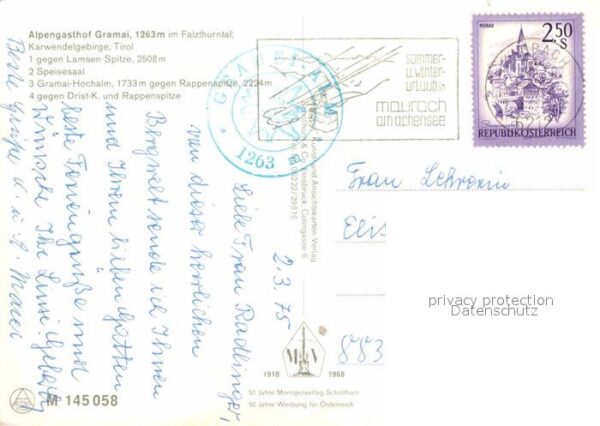 Alpengasthof Gramai, 1263 m im Falzthurntal;
Karwendelgebirge, Tirol
1 gegen Lamsen-Spitze, 2508 m
2 Speisesaal
3 Gramai-Hochalm, 1733 m gegen Rappenspitze, 2224 m
4 gegen Drist-K. und Rappenspitze
sommer-
u. winter-
urlaub in
maurach
am achensee
MURAU
2.50
S
REPUBLIK ÖSTERREICH
GRAMAI ALM
1263
2.3.75
Liebe Frau Radlinger,
von dieser herrlichen
Bergwelt sende ich Ihnen
und Ihrem lieben Gatten
beste Feriengrüße und
wünsche Ihr
Beste Grüße
Maier
Frau Lehrerin
Elis
883
privacy protection
Datenschutz
Kunst- und Ansichtskarten-Verlag
Innsbruck,
1918
1968
50 Jahre Monopolverlag Schöllhorn
50 Jahre Werbung für Österreich
M 145 058